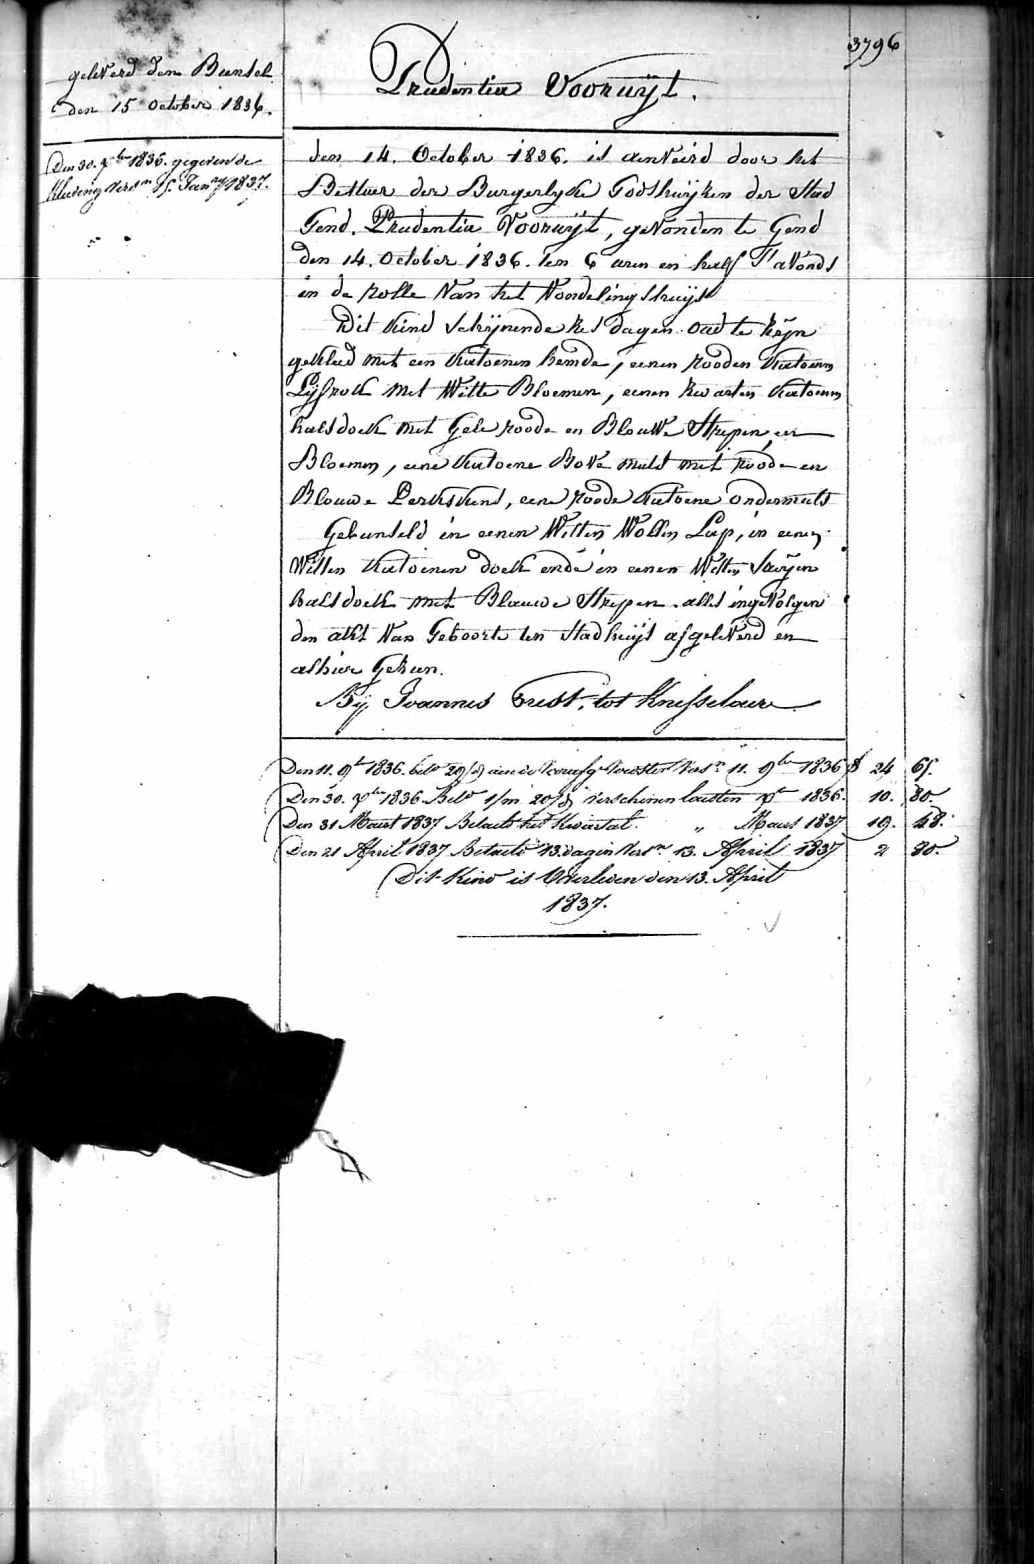 3796
geleverd den Bunsel
den 15 october 1836.
Den 30. xber 1836. gegeven de
kleeding versn 15. Janry 1837.
Prudentia Vooruijt.
den 14. October 1836. is aenveird door het
Bestier der Burgerlyke Godshuijzen der Stad
Gend. Prudentia Vooruijt, gevonden te Gend
den 14. October 1836. ten 6 uren en half s'avonds
in de rolle van het Vondelingshuijs
Dit kind schijnende zes dagen oud te zijn
gekleed met een kattoenen hemde, eenen rooden kattoenen
Lijfrock met Witte Bloemen, eenen zwarten kattoenen
halsdoek met Gele roode en Blouwe Strepen en
Bloemen, eene kattoene Bove muts met roode en
Blouwe Perkskens, eene roode kattoene ondermuts
Gebundeld in eenen Witten Wollen Lap, in eenen
Witten kattoenen doek ende in eenen Witten Saeijen
halsdoek met Blauwe Strepen. alles ingevolgen
den akt van Geboorte ten Stadhuijs afgeleverd en
alhier Gezien.
Bij Joannes tot Knesselaere
Den 11. 9br 1836. bet. 29 aen de voester versn 11. 9ber 1836 24 65.
Den 30. xber 1836. Betd 1/m 20 d verschenen laetsten xbr 1836. 10. 80.
Den 31 Maert 1837 Betaelt het Kwartal. " Maert 1837 19. 48.
Den 21 April 1837 Betaelt 13. dagen versn 13. April 1837 2 80.
Dit Kind is Overleden den 13. April
1837.